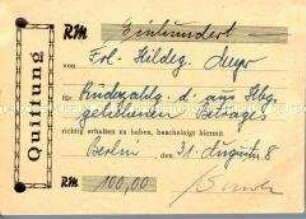 Quittung
RM Einhundert
von Frl. Hildeg. Meyr
für Rückzahlg. d. aus Hbg.
geliehenen Betrages
richtig erhalten zu haben, bescheinigt hiermit
Berlin, den 31. August 8
RM 100,00